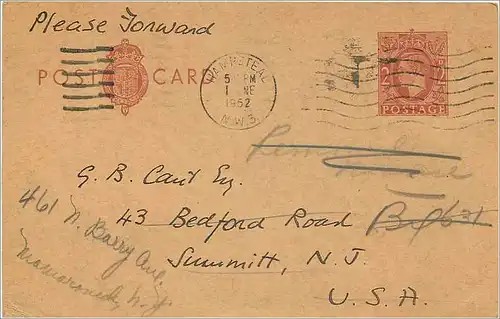 Please Forward
POST CARD
HAMPSTEAD
5 PM
1 NE
1952
N.W.3.
2 2
POSTAGE
G. B. Cant Esq.
43 Bedford Road
Summitt, N. J.
U. S. A.
461 N. Barry Ave.
Mamaroneck, N.Y.